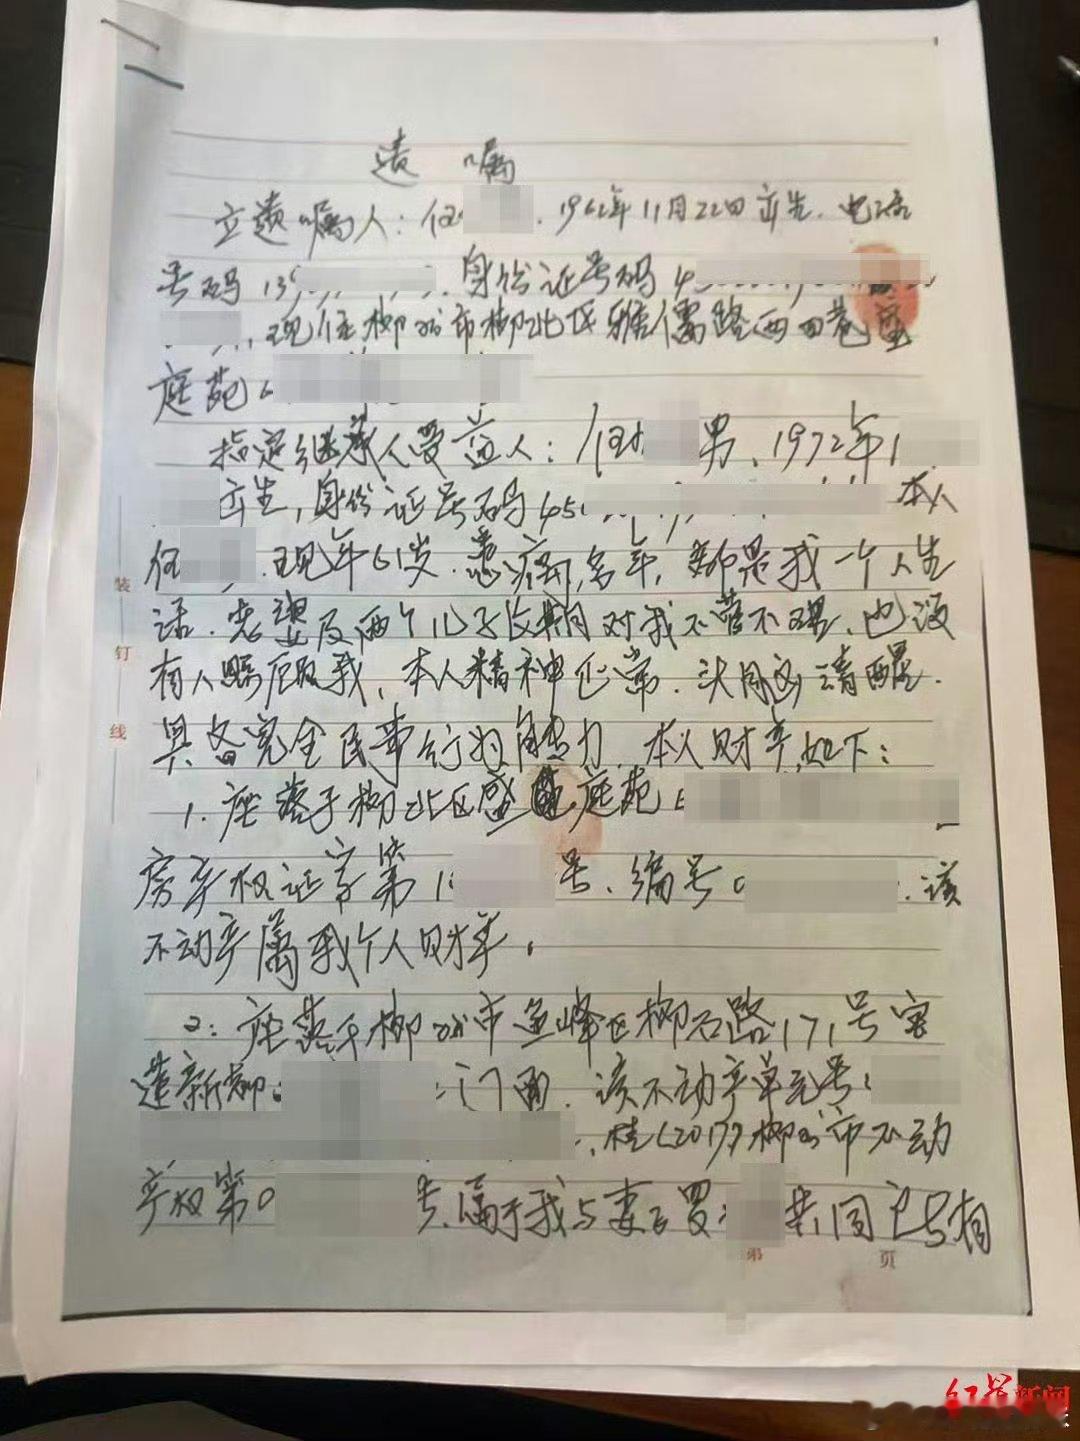 遗 嘱
立遗嘱人：任 ，1962年11月22日产生，电话
号码139 ，身份证号码4
，现住柳州市柳北区雅儒路西四巷盛
庭苑
指定继承人受益人：任 男、1972年1
产生，身份证号码450 本人
任 ，现年61岁，患病多年，都是我一个人生
活，老婆及两个儿子长期对我不管不理、也没
有人照顾我，本人精神正常，头脑清醒，
具备完全民事行为能力，本人财产如下：
1、座落于柳北区盛 庭苑
房产权证字第1 号、编号0 ，该
不动产属我个人财产。
2：座落于柳州市鱼峰区柳石路171号
新柳 门面，该不动产单元号：
，桂(2017)柳州市不动
产权第0 号，属于我与妻子罗 共同
装
钉
线
第 页
红星新闻